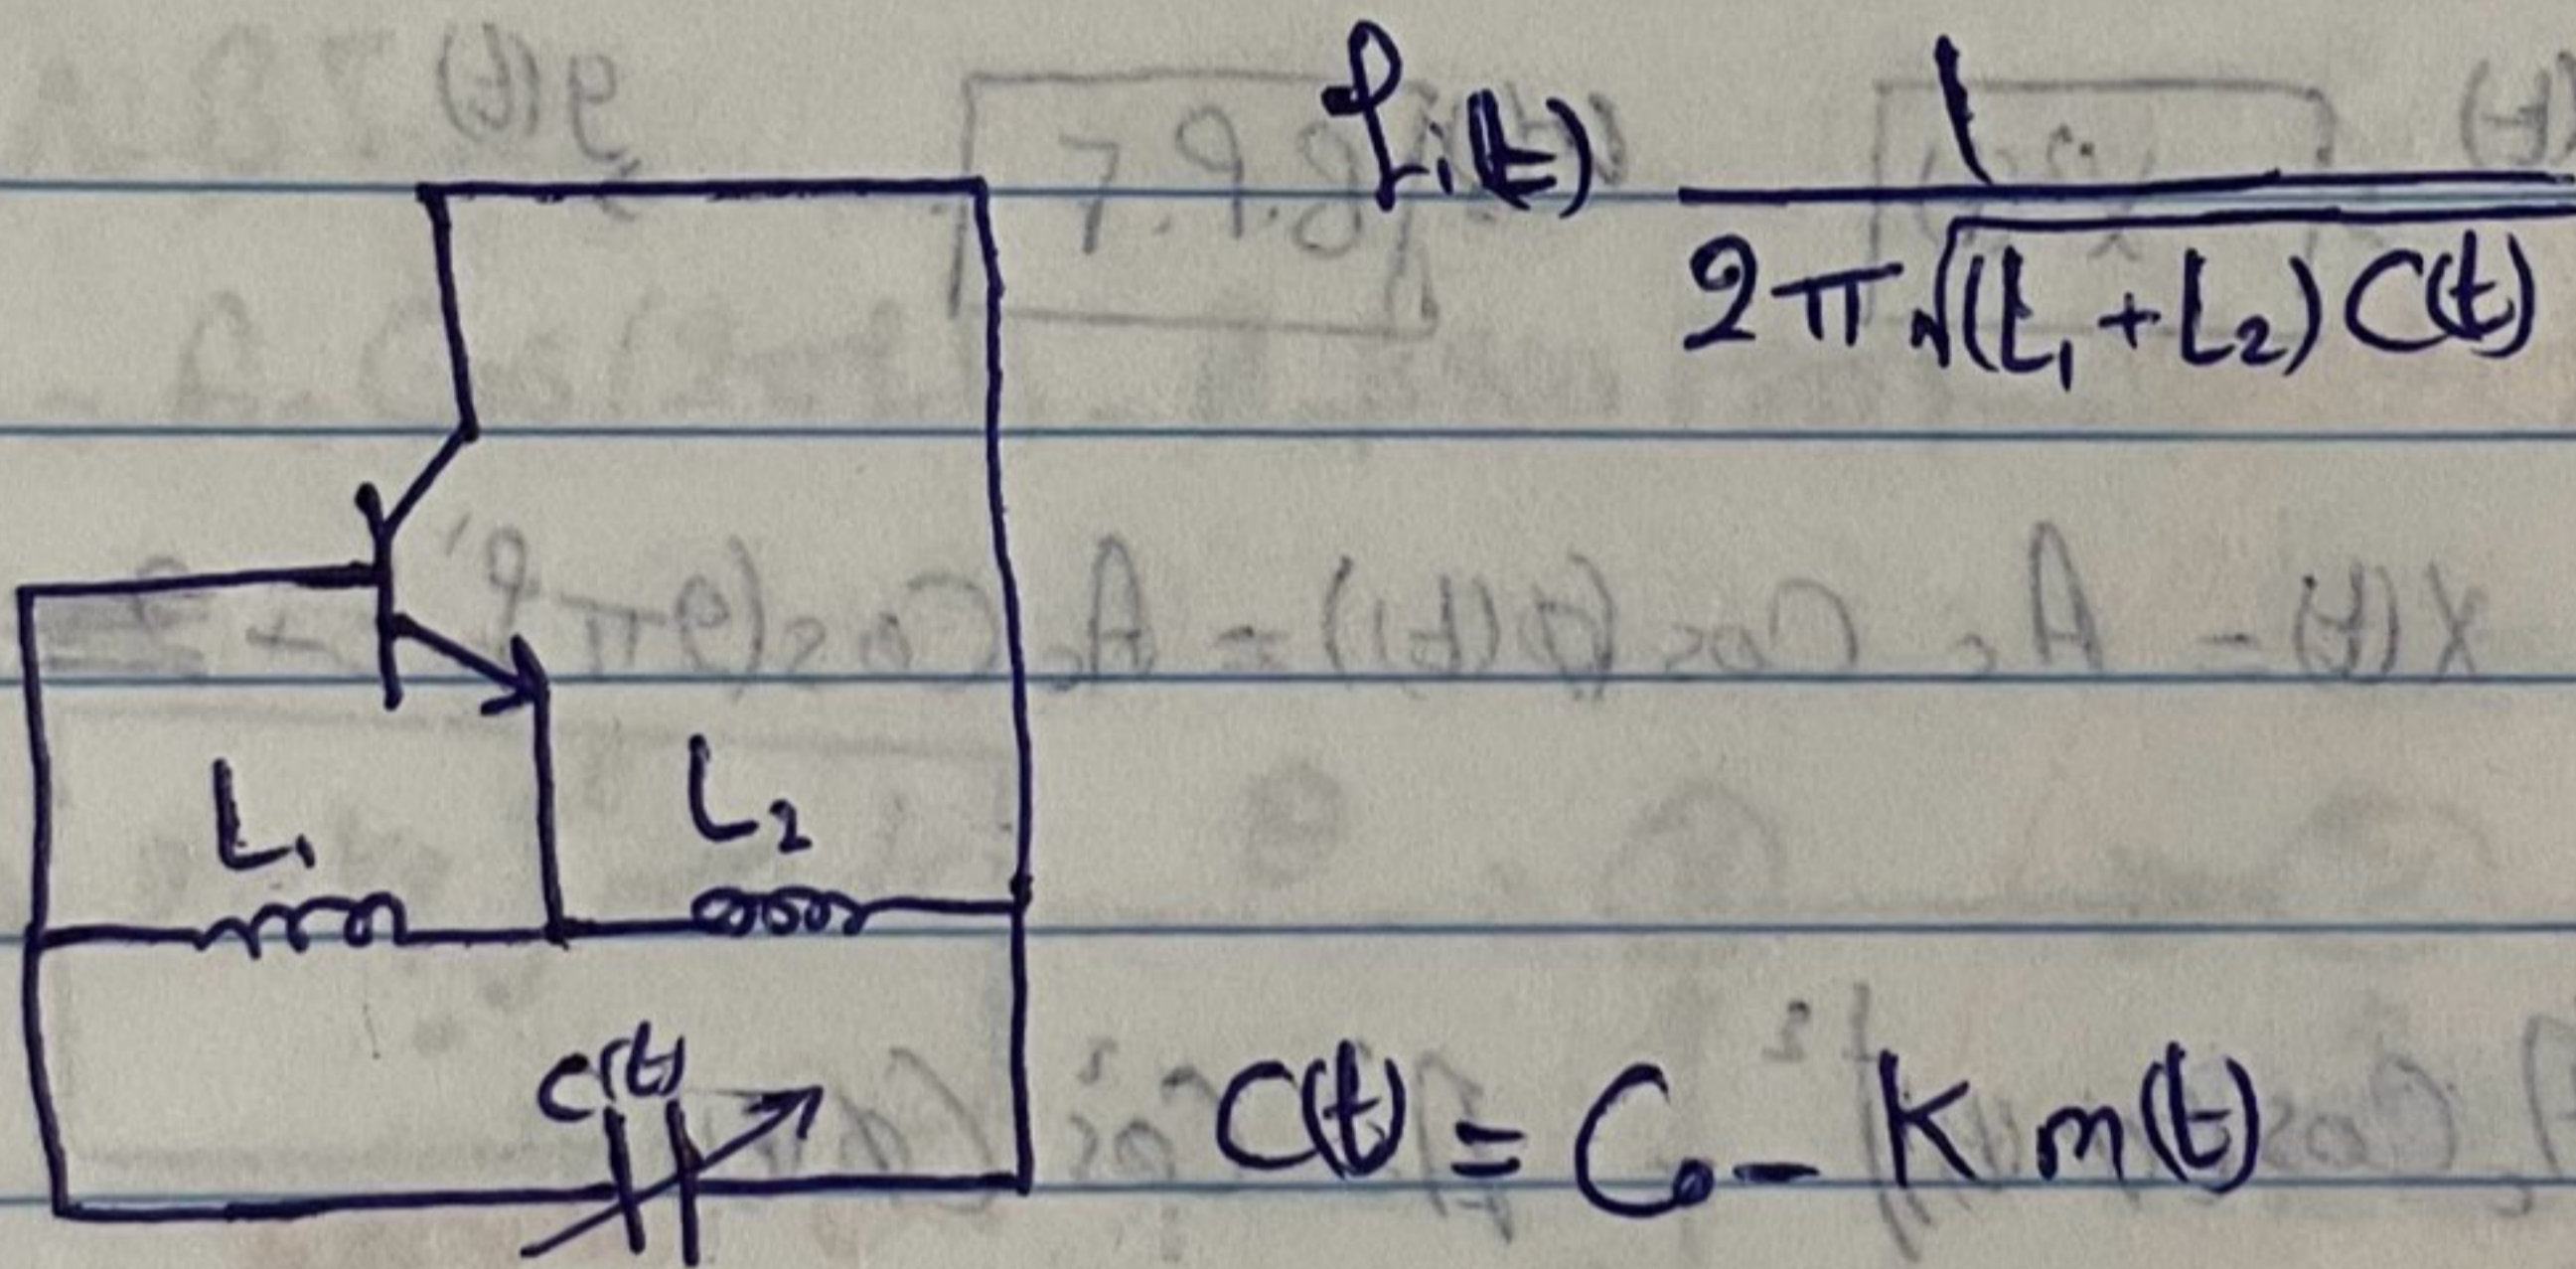 fi(t) 1
2π√(L1+L2) C(t)
L1
L2
C(t)
C(t) = C0 - K m(t)